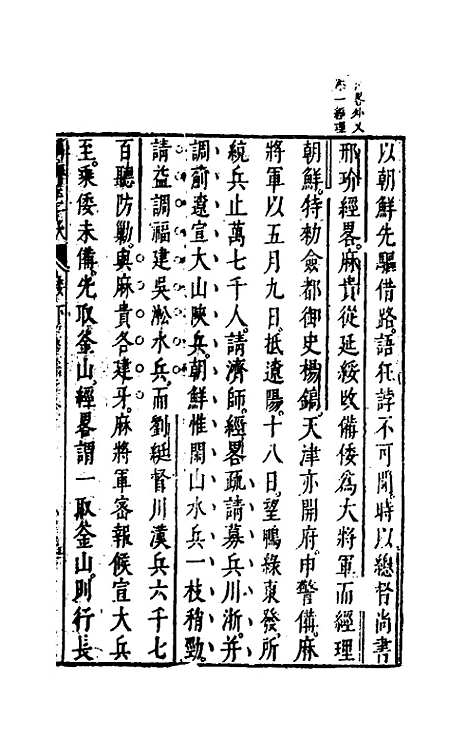 畧外又
一經理
以朝鮮先驅借路語狂誖不可聞時以總督尚書
邢玠經畧麻貴從延綏改備倭爲大將軍而經理
朝鮮特勅僉都御史楊鎬天津亦開府申警備麻
將軍以五月九日抵遼陽十八日望鴨綠東發所
統兵止萬七千人請濟師經畧疏請募兵川浙并
調薊遼宣大山陝兵朝鮮惟閑山水兵一枝稍勁
請益調福建吳淞水兵而劉綎督川漢兵六千七
百聽防勦與麻貴各建牙麻將軍密報候宣大兵
至乘倭未備先取釜山經畧謂一取釜山則行長